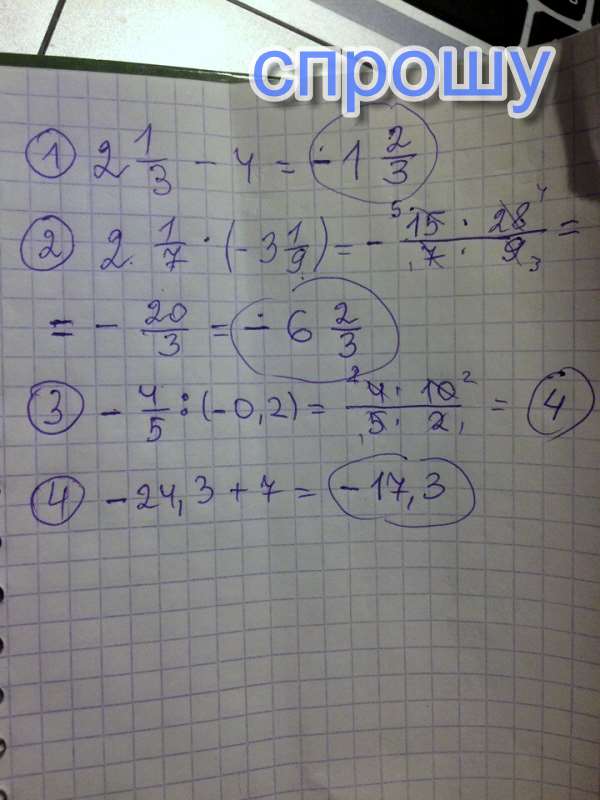 спрошу
① 2 1/3 - 4 = -1 2/3
② 2 1/7 · (-3 1/9) = - 15 · 28 / 7 · 9 =
= - 20/3 = - 6 2/3
③ - 4/5 : (-0,2) = 4 · 10 / 5 · 2 = 4
④ -24,3 + 7 = -17,3